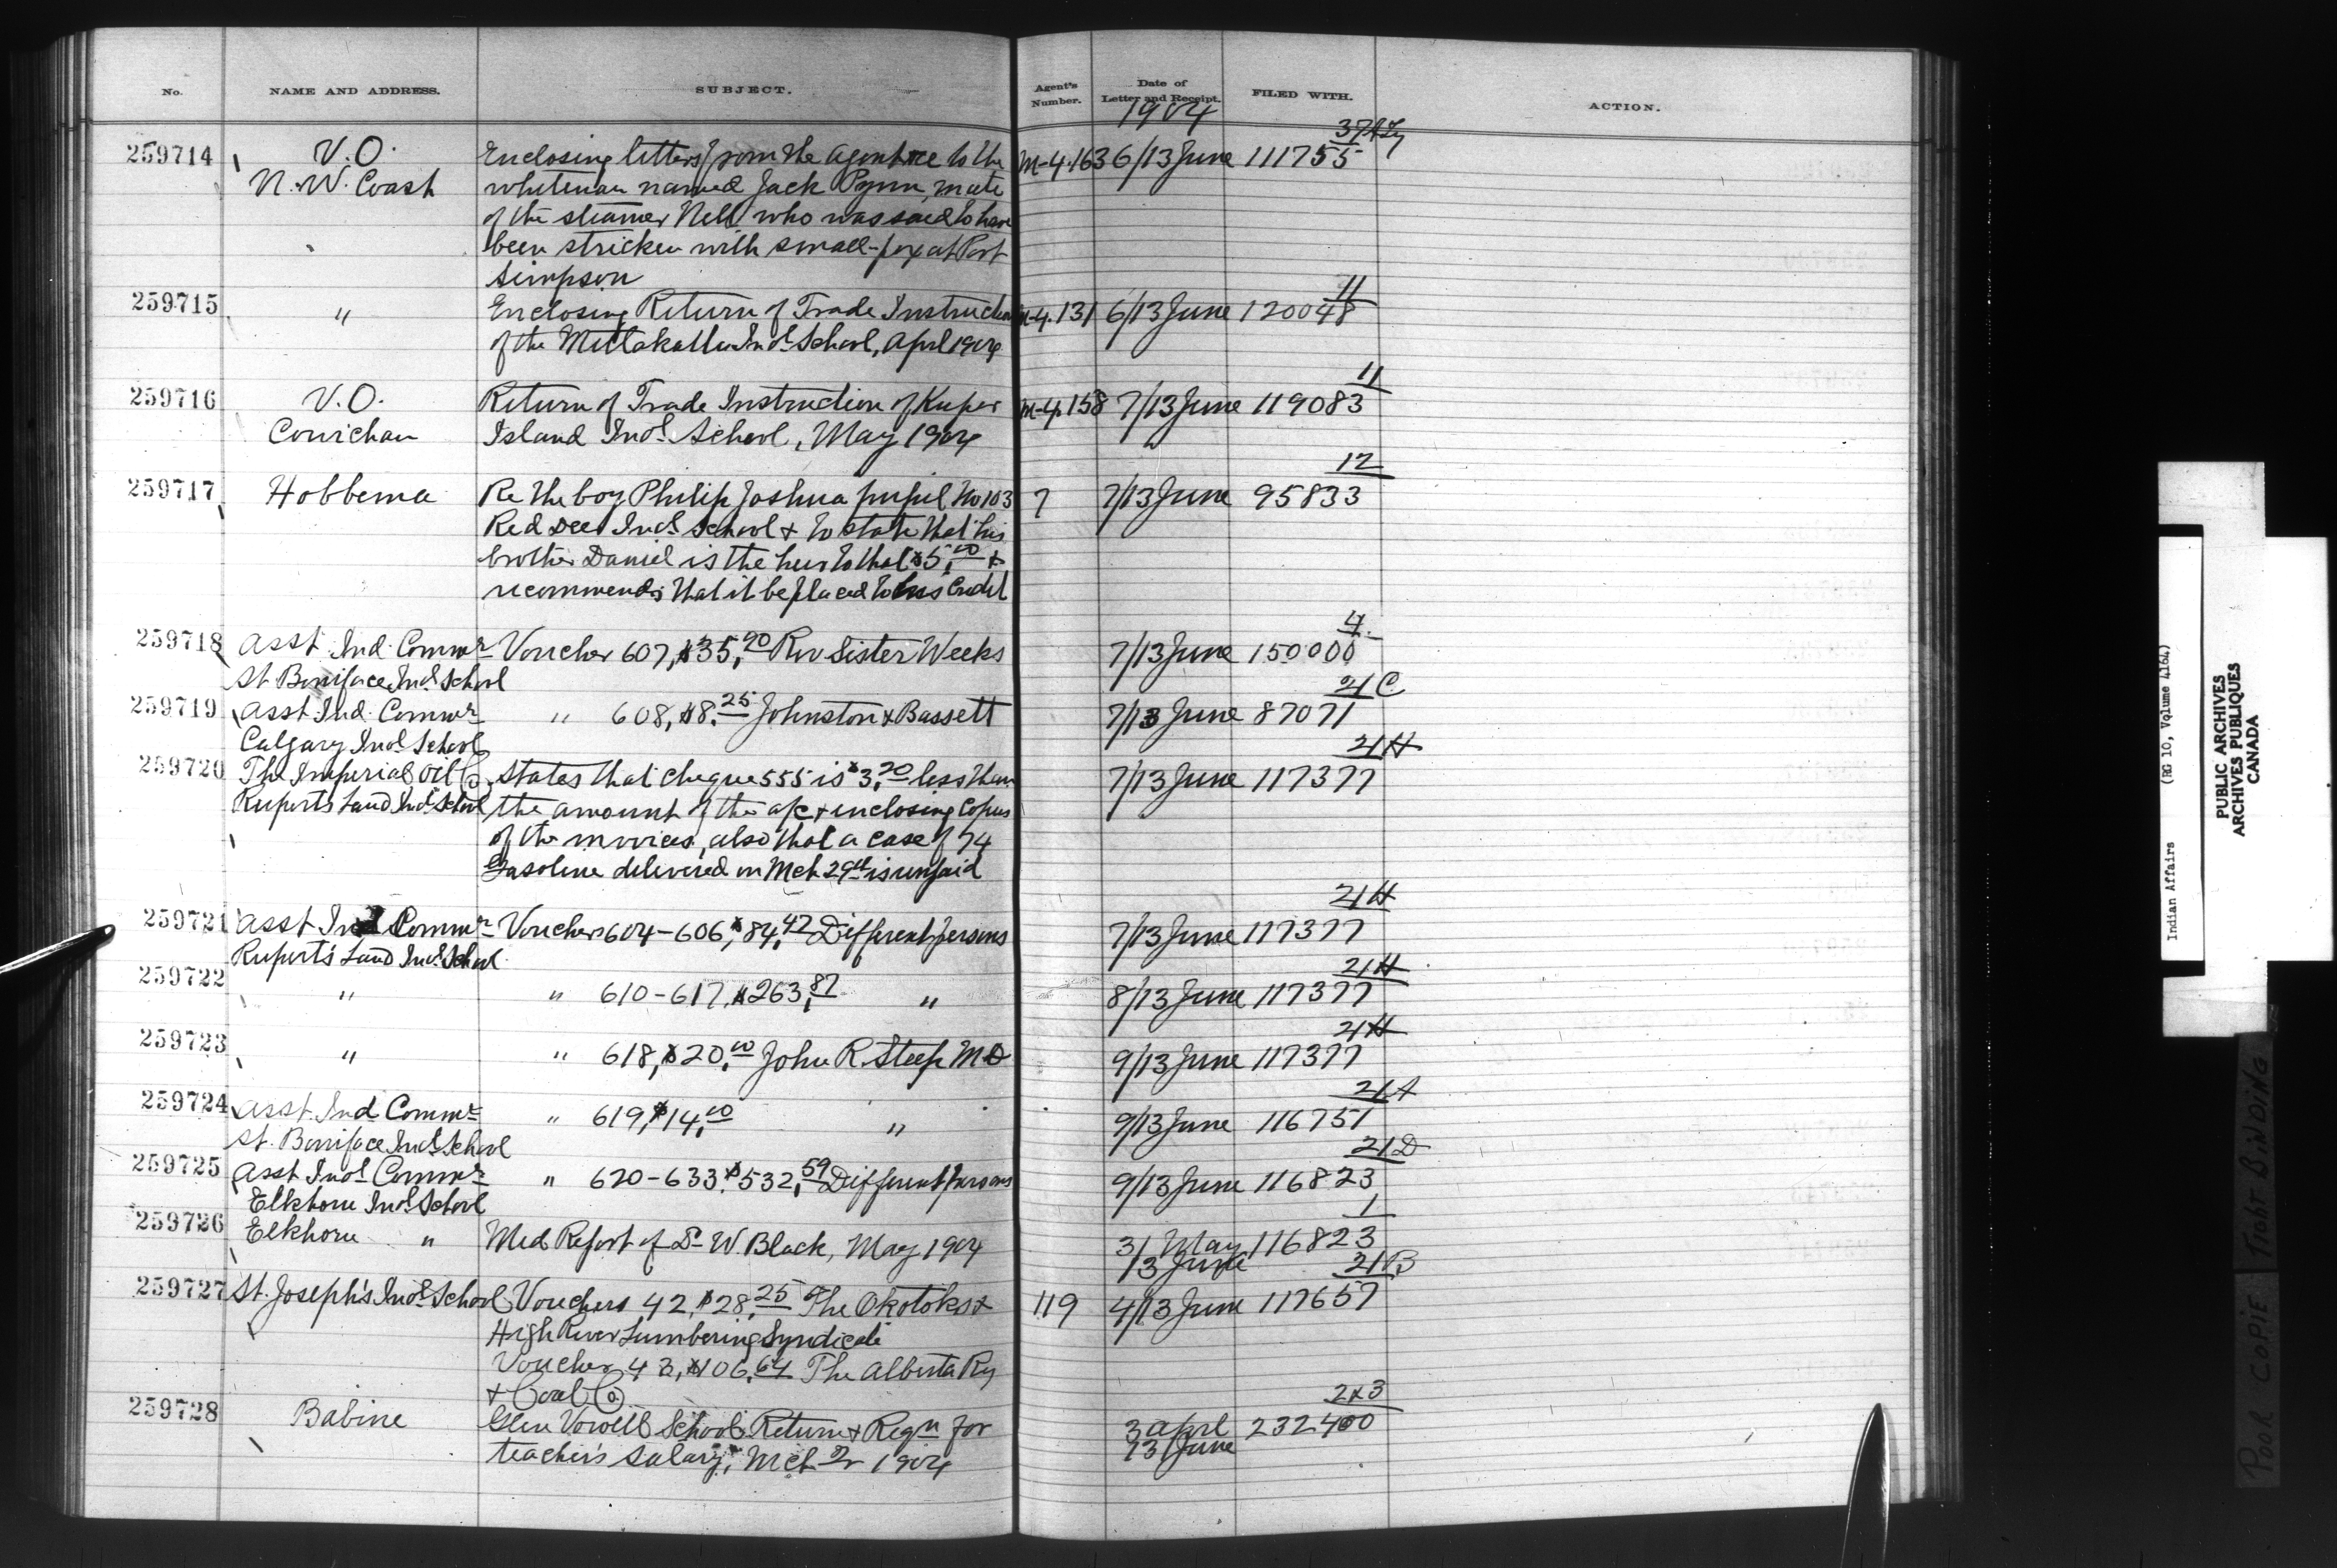 No. NAME AND ADDRESS. SUBJECT. Agent's Number. Date of Letter and Receipt. FILED WITH. ACTION.
1904
37
259714 V.O. Enclosing letters from the Agent re to the M-4.163 6/13 June 111755
N.W. Coast whiteman named Jack Pynn, mate
of the steamer Nell who was said to have
been stricken with small-pox at Port
Simpson
11
259715 " Enclosing Return of Trade Instruction M-4.131 6/13 June 120048
of the Metlakatla Indl School, April 1904
11
259716 V.O. Return of Trade Instruction of Kuper M-4.158 7/13 June 119083
Cowichan Island Indl School, May 1904
12
259717 Hobbema Re the boy Philip Joshua pupil No 103 7 7/13 June 95833
Red Deer Indl School & to state that his
brother Daniel is the heir to that $5.00 &
recommends that it be placed to his credit
4
259718 Asst. Ind. Commr Voucher 607, $35.90 Rev Sister Weeks 7/13 June 150000
St. Boniface Indl School
21 C
259719 Asst. Ind. Commr " 608, $8.25 Johnston & Bassett 7/13 June 87071
Calgary Indl School
21 H
259720 The Imperial Oil Co. States that cheque 555 is $3.20 less than 7/13 June 117377
Rupert's Land Indl School the amount of the a/c & enclosing copies
of the invoices, also that a case of 74
Gasoline delivered on Mch 29th is unpaid
21 H
259721 Asst Ind Commr Vouchers 604-606, $84.42 Different persons 7/13 June 117377
Rupert's Land Indl School
21 H
259722 " " 610-617, $263.87 " 8/13 June 117377
21 H
259723 " " 618, $20.00 John R. Steep MD 9/13 June 117377
21 A
259724 Asst. Ind Commr " 619, $14.00 " 9/13 June 116751
St. Boniface Indl School
21 D
259725 Asst Indl Commr " 620-633, $532.59 Different persons 9/13 June 116823
Elkhorn Indl School
1
259726 Elkhorn " Med Report of Dr W. Black, May 1904 31 May 116823
13 June
21 B
259727 St. Joseph's Indl School Vouchers 42, $28.25 The Okotoks & 119 4/13 June 117657
High River Lumbering Syndicate
Voucher 43, $106.64 The Alberta Ry
& Coal Co.
2&3
259728 Babine Glen Vowell School Return & Reqn for 3 April 232400
teacher's salary, Mch Qr 1904 13 June
Indian Affairs (RG 10, Volume 4164)
PUBLIC ARCHIVES
ARCHIVES PUBLIQUES
CANADA
POOR COPIE TIGHT BINDING